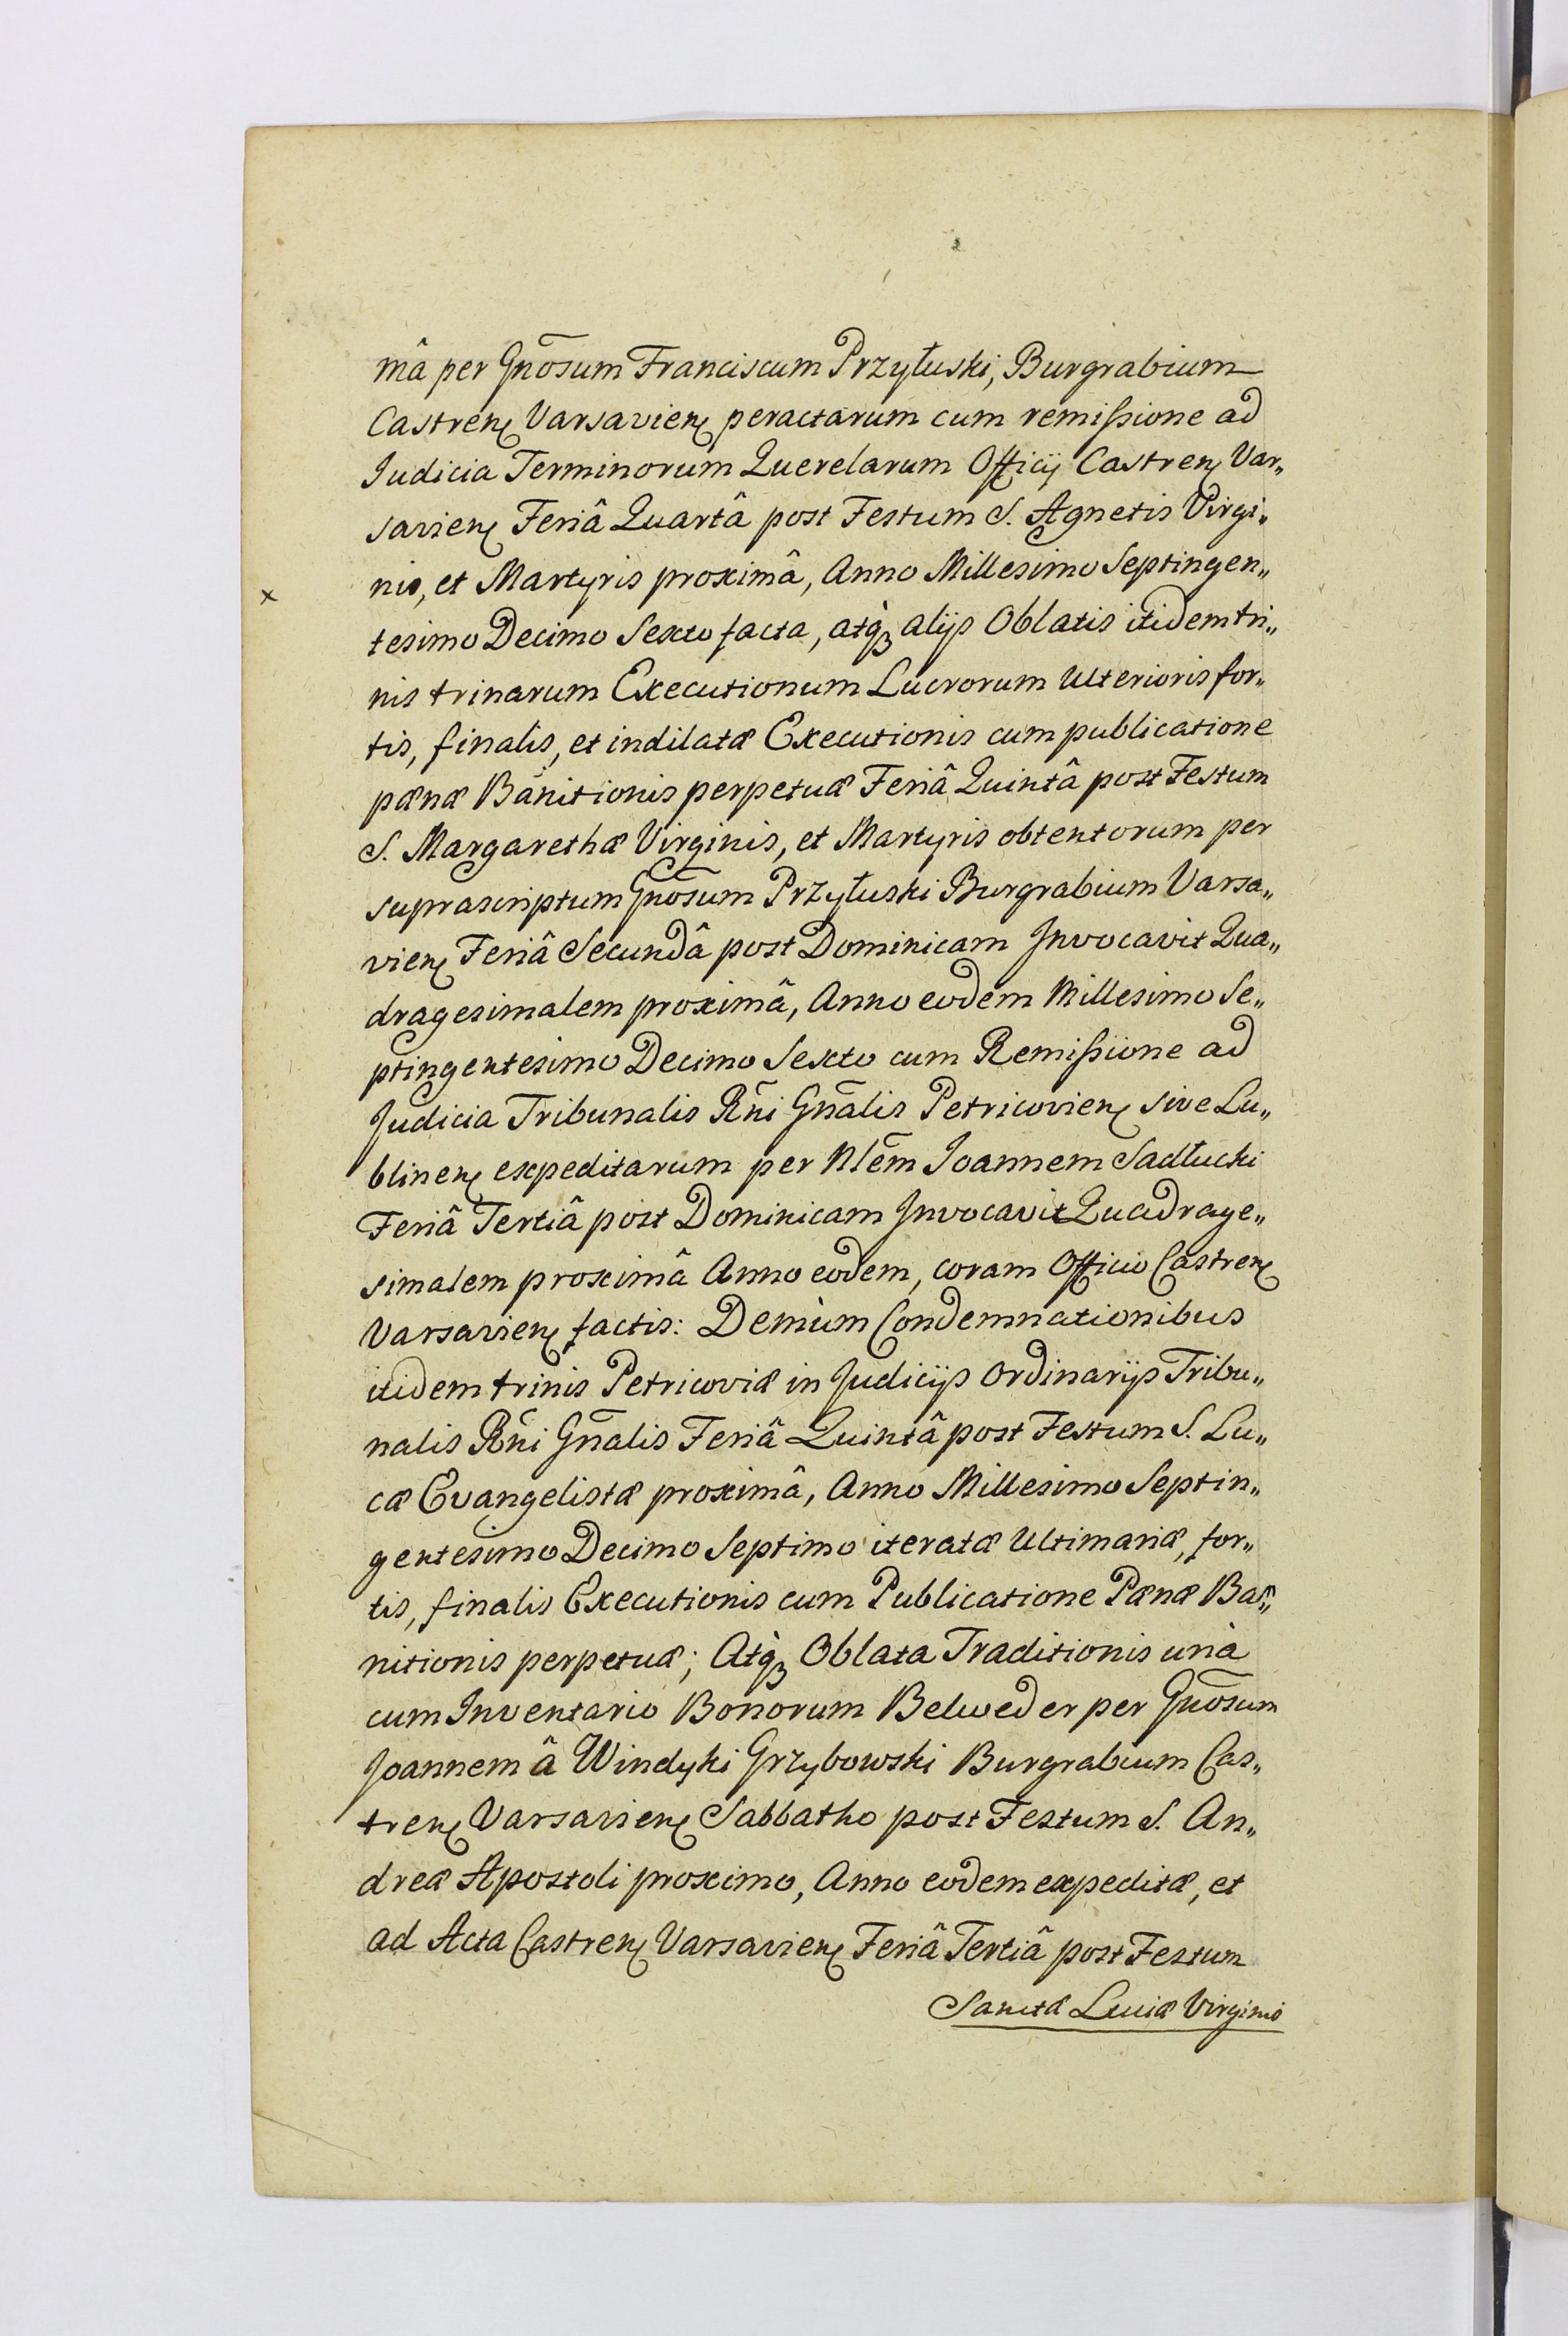 mâ per Gnõsum Franciscum Przyłuski, Burgrabium
Castren Varsavien peractarum cum remissione ad
Judicia Terminorum Querelarum Officij Castren Var„
savien Feriâ Quartâ post Festum S. Agnetis Virgi„
nis, et Martyris proximâ, Anno Millesimo Septingen„
tesimo Decimo Sexto facta, atq́ꝫ alijs Oblatis itidem tri„
nis trinarum Executionum Lucrorum Ulterioris for„
tis, finalis, et indilatæ Executionis cum publicatione
pænæ Bãnitionis perpetuæ Feriâ Quintâ post Festum
S. Margarethæ Virginis, et Martyris obtentorum per
suprascriptum Gnõsum Przyłuski Burgrabium Varsa„
vien Feriâ Secundâ post Dominicam Invocavit Qua„
dragesimalem proximâ, Anno eodem Millesimo Se„
ptingentesimo Decimo Sexto cum Remissione ad
Judicia Tribunalis Rñi Gñalis Petricovien sive Lu„
blinen expeditarum per Nlẽm Joannem Sadłucki
Feriâ Tertiâ post Dominicam Invocavit Quadrage„
simalem proximâ Anno eodem, coram Officio Castren
Varsavien factis: Demùm Condemnationibus
itidem trinis Petricoviæ in Judicijs Ordinarijs Tribu„
nalis Rñi Gñalis Feriâ Quintâ post Festum S. Lu„
cæ Evangelistæ proximâ, Anno Millesimo Septin„
gentesimo Decimo Septimo iteratæ Ultimariæ, for„
tis, finalis Executionis cum Publicatione Pænæ Bañ„
nitionis perpetuæ; Atq́ꝫ Oblata Traditionis unà
cum Inventario Bonorum Belweder per Gnõsum
Joannem â Windyki Grzybowski Burgrabium Cas„
tren Varsavien Sabbatho post Festum S. An„
dreæ Apostoli proximo, Anno eodem expeditæ, et
ad Acta Castren Varsavien Feriâ Tertiâ post Festum
Sanctæ Luciæ Virginis